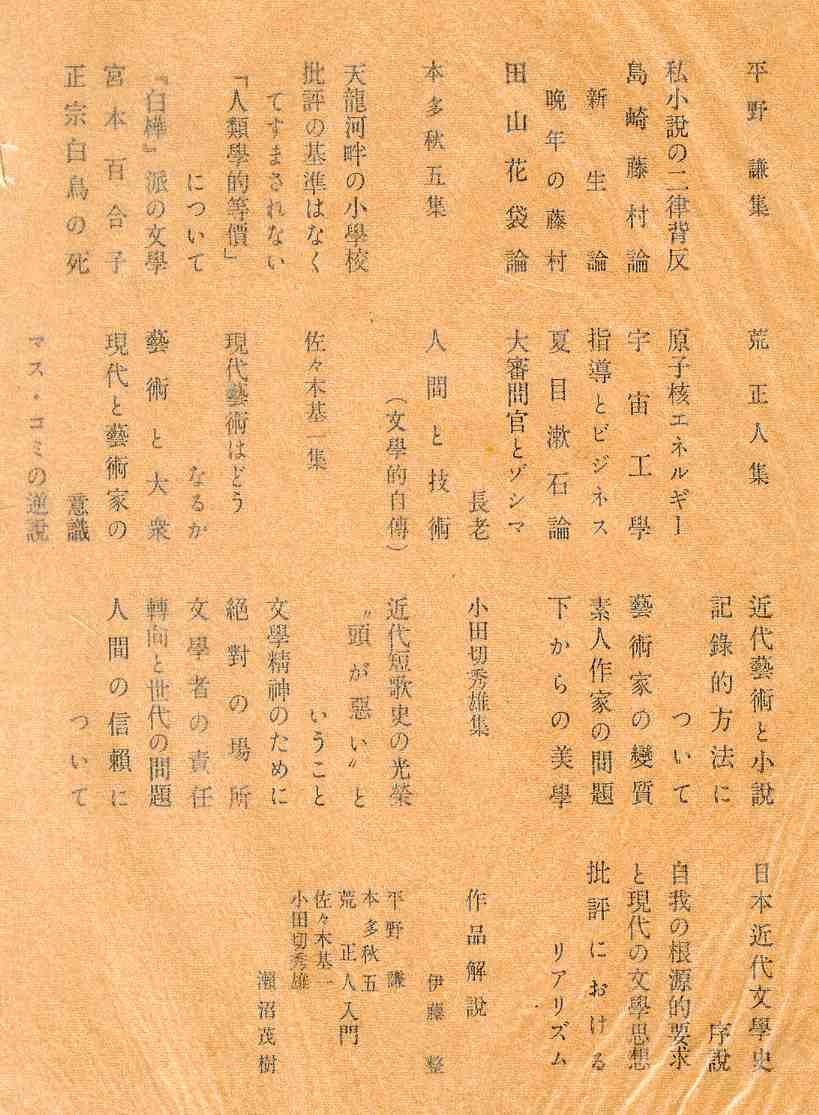 平野謙集
私小說の二律背反
島崎藤村論
新生論
晩年の藤村
田山花袋論
本多秋五集
天龍河畔の小學校
批評の基準はなく
てすまされない
「人類學的等價」
について
『白樺』派の文學
宮本百合子
正宗白鳥の死
荒正人集
原子核エネルギー
宇宙工學
指導とビジネス
夏目漱石論
大審問官とゾシマ
長老
人間と技術
（文學的自傳）
佐々木基一集
現代藝術はどう
なるか
藝術と大衆
現代と藝術家の
意識
マス・コミの逆說
近代藝術と小說
記錄的方法に
ついて
藝術家の變質
素人作家の問題
下からの美學
小田切秀雄集
近代短歌史の光榮
〝頭が惡い〟と
いうこと
文學精神のために
絕對の場所
文學者の責任
轉向と世代の問題
人間の信賴に
ついて
日本近代文學史
序說
自我の根源的要求
と現代の文學思想
批評における
リアリズム
作品解說
伊藤整
平野謙
本多秋五
荒正人入門
佐々木基一
小田切秀雄
瀨沼茂樹